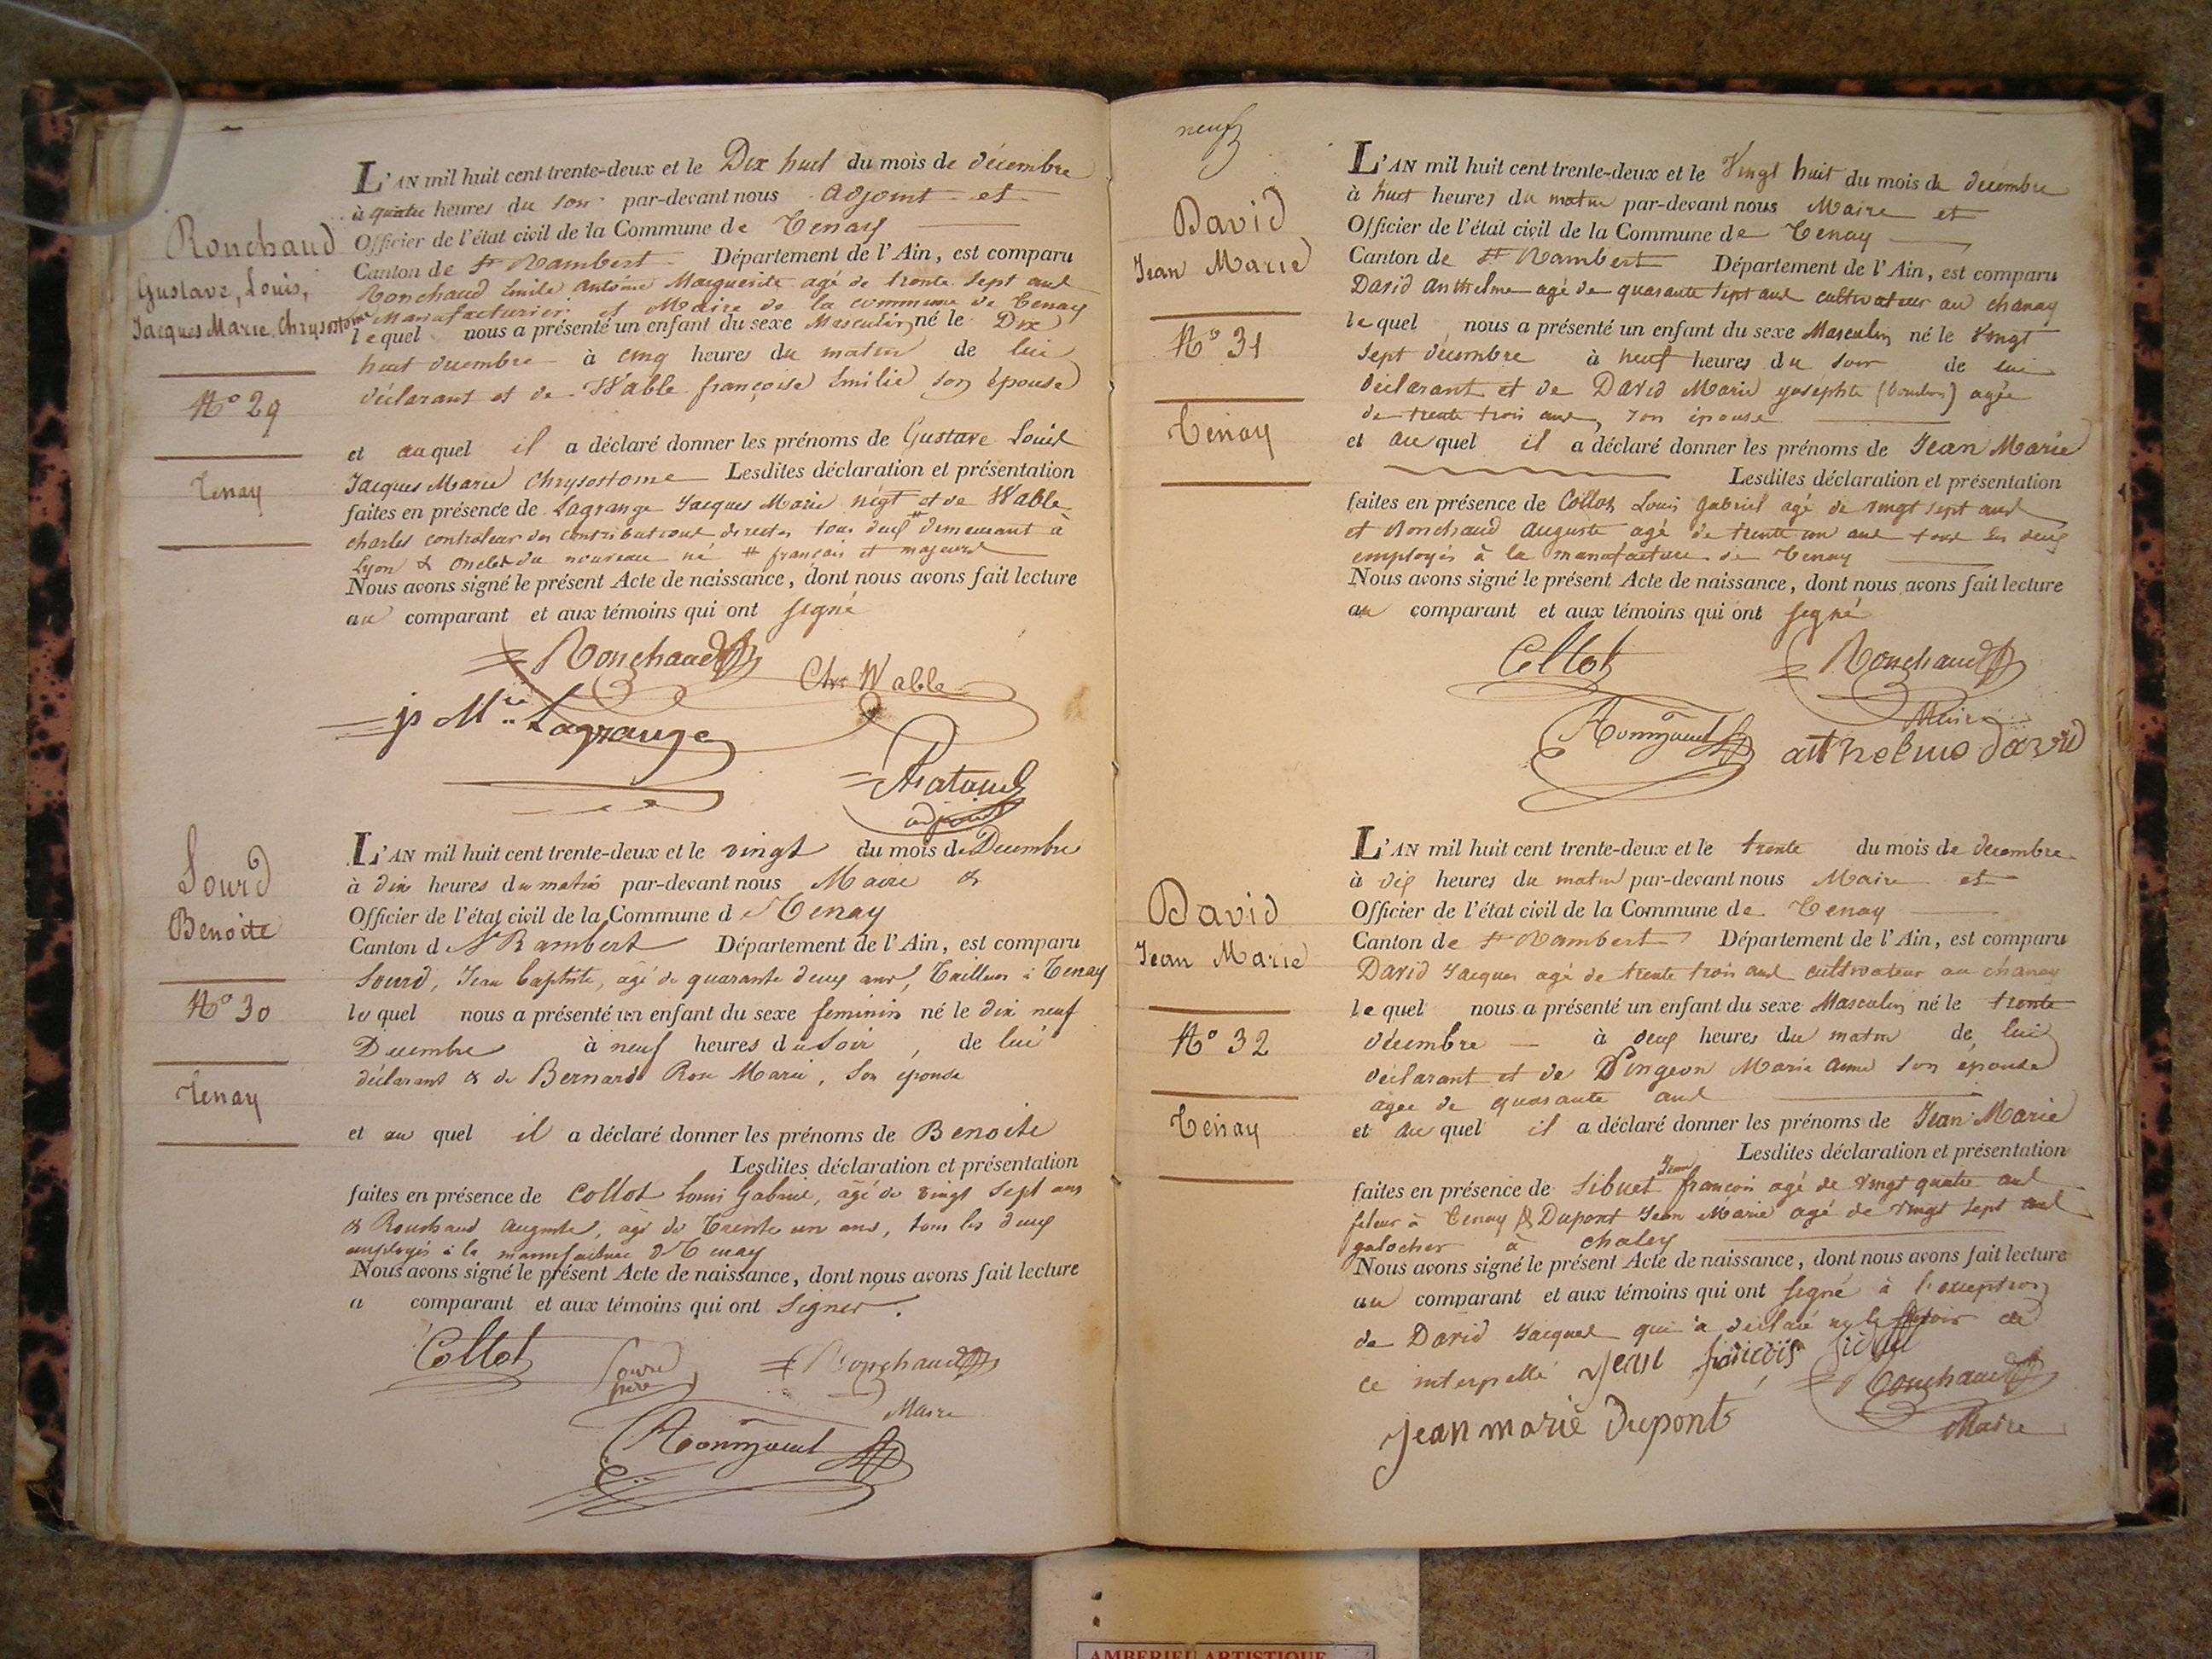 L'AN mil huit cent trente-deux et le Dix huit du mois de décembre
à quatre heures du soir par-devant nous adjoint et
Officier de l'état civil de la Commune de Tenay
Canton de St Rambert Département de l'Ain, est comparu
Ronchaud Emile Antoine Marguerite agé de trente sept ans
Manufacturier et Maire de la commune de Tenay
lequel nous a présenté un enfant du sexe Masculin né le Dix
huit décembre à cinq heures du matin de lui
déclarant et de Wable françoise Emilie son épouse
et auquel il a déclaré donner les prénoms de Gustave Louis
Jacques Marie Chrysostome Lesdites déclaration et présentation
faites en présence de Lagrange Jacques Marie négt et de Wable
charles controleur des contributions directes tous deux # demeurant à
Lyon & oncles du nouveau né # français et majeurs
Nous avons signé le présent Acte de naissance, dont nous avons fait lecture
au comparant et aux témoins qui ont signé
Ronchaud
Chs Wable
js Mie Lagrange
adjoint
Ronchaud
Gustave, Louis,
Jacques Marie Chrysostome
No 29
Tenay
L'AN mil huit cent trente-deux et le vingt du mois de Decembre
à dix heures du matin par-devant nous Maire &
Officier de l'état civil de la Commune de Tenay
Canton de St Rambert Département de l'Ain, est comparu
Sourd, Jean Baptiste, agé de quarante deux ans, Tailleur à Tenay
lequel nous a présenté un enfant du sexe feminin né le dix neuf
Decembre à neuf heures du Soir, de lui
déclarant & de Bernard Rose Marie, Son épouse
et au quel il a déclaré donner les prénoms de Benoite
Lesdites déclaration et présentation
faites en présence de Collot Louis Gabriel, agé de vingt Sept ans
& Ronchaud Auguste, agé de Trente un ans, tous les deux
employés à la manufacture de Tenay
Nous avons signé le présent Acte de naissance, dont nous avons fait lecture
a comparant et aux témoins qui ont Signer.
Collot
Sourd
père
Ronchaud
Maire
Sourd
Benoite
No 30
Tenay
neuf
L'AN mil huit cent trente-deux et le Vingt huit du mois de décembre
à huit heures du matin par-devant nous Maire et
Officier de l'état civil de la Commune de Tenay
Canton de St Rambert Département de l'Ain, est comparu
David Anthelme agé de quarante sept ans cultivateur au chanay
lequel nous a présenté un enfant du sexe Masculin né le Vingt
sept décembre à neuf heures du soir de lui
déclarant et de David Marie josephte agée
de trente trois ans, son épouse
et auquel il a déclaré donner les prénoms de Jean Marie
Lesdites déclaration et présentation
faites en présence de Collot Louis gabriel agé de vingt sept ans
et Ronchaud auguste agé de trente un ans tous les deux
employés à la manufacture de Tenay
Nous avons signé le présent Acte de naissance, dont nous avons fait lecture
au comparant et aux témoins qui ont signé
Collot
Ronchaud
Maire
anthelme david
David
Jean Marie
No 31
Tenay
L'AN mil huit cent trente-deux et le trente du mois de décembre
à dix heures du matin par-devant nous Maire et
Officier de l'état civil de la Commune de Tenay
Canton de St Rambert Département de l'Ain, est comparu
David Jacques agé de trente trois ans cultivateur au chanay
lequel nous a présenté un enfant du sexe Masculin né le trente
décembre à deux heures du matin de lui
déclarant et de Pingeon Marie anne son épouse
agée de quarante ans
et auquel il a déclaré donner les prénoms de Jean Marie
Lesdites déclaration et présentation
faites en présence de Sibuet Jean françois agé de vingt quatre ans
fileur à Tenay & Dupont Jean Marie agé de vingt sept ans
galocher à chaley
Nous avons signé le présent Acte de naissance, dont nous avons fait lecture
au comparant et aux témoins qui ont signé à l'exception
de David Jacques qui a déclaré ne le savoir de
ce interpellé jean francois Sibuet
Ronchaud
jean marie Dupont
Maire
David
Jean Marie
No 32
Tenay
AMBERIEU ARTISTIQUE